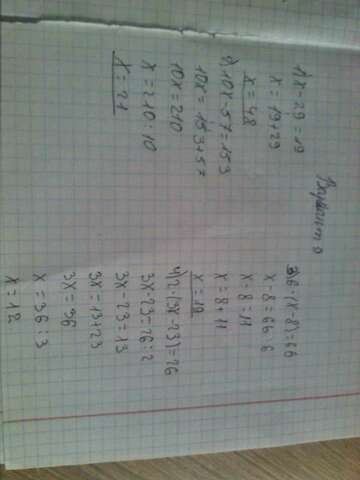 Вариант
1) x-29=19
x=19+29
x=48
2) 10x-57=153
10x=153+57
10x=210
x=210:10
x=21
3) 6·(x-8)=66
x-8=66:6
x-8=11
x=8+11
x=19
4) 2·(3x-23)=26
3x-23=26:2
3x-23=13
3x=13+23
3x=36
x=36:3
x=12